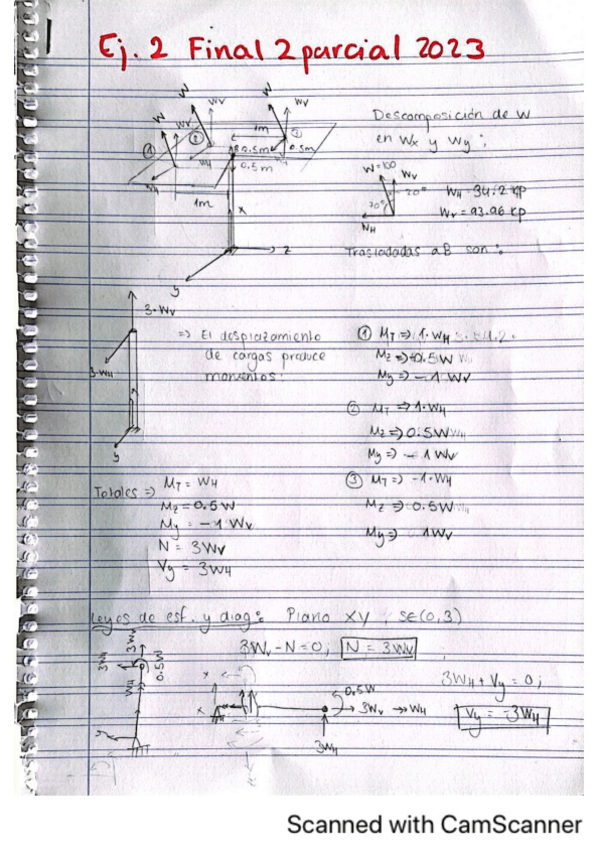 Ej. 2 Final 2 parcial 2023
W
W
Wv
W
Wv
Wv
1m
①
②
③
0.5m
0.5m
WH
0.5m
WH
1m
x
z
y
Descomposición de W
en Wx y Wy :
W=100
Wv
20°
WH = 34.2 kp
Wv = 93.96 kp
WH
Trasladadas a B son :
3·Wv
3·WH
y
=> El desplazamiento
de cargas produce
momentos:
① MT => 1·WH
Mz => +0.5W
My => - 1 Wv
② MT => 1·WH
Mz => 0.5W
My => - 1 Wv
③ MT => -1·WH
Mz => 0.5W
My => 1Wv
Totales => MT = WH
Mz = 0.5W
My = -1 Wv
N = 3Wv
Vy = 3WH
Leyes de esf. y diag : Plano XY , SE(0,3)
3Wv - N = 0; N = 3Wv
3WH + Vy = 0;
Vy = -3WH
3Wv
3WH
0.5W
WH
x
0.5W
3Wv
WH
3WH
Scanned with CamScanner